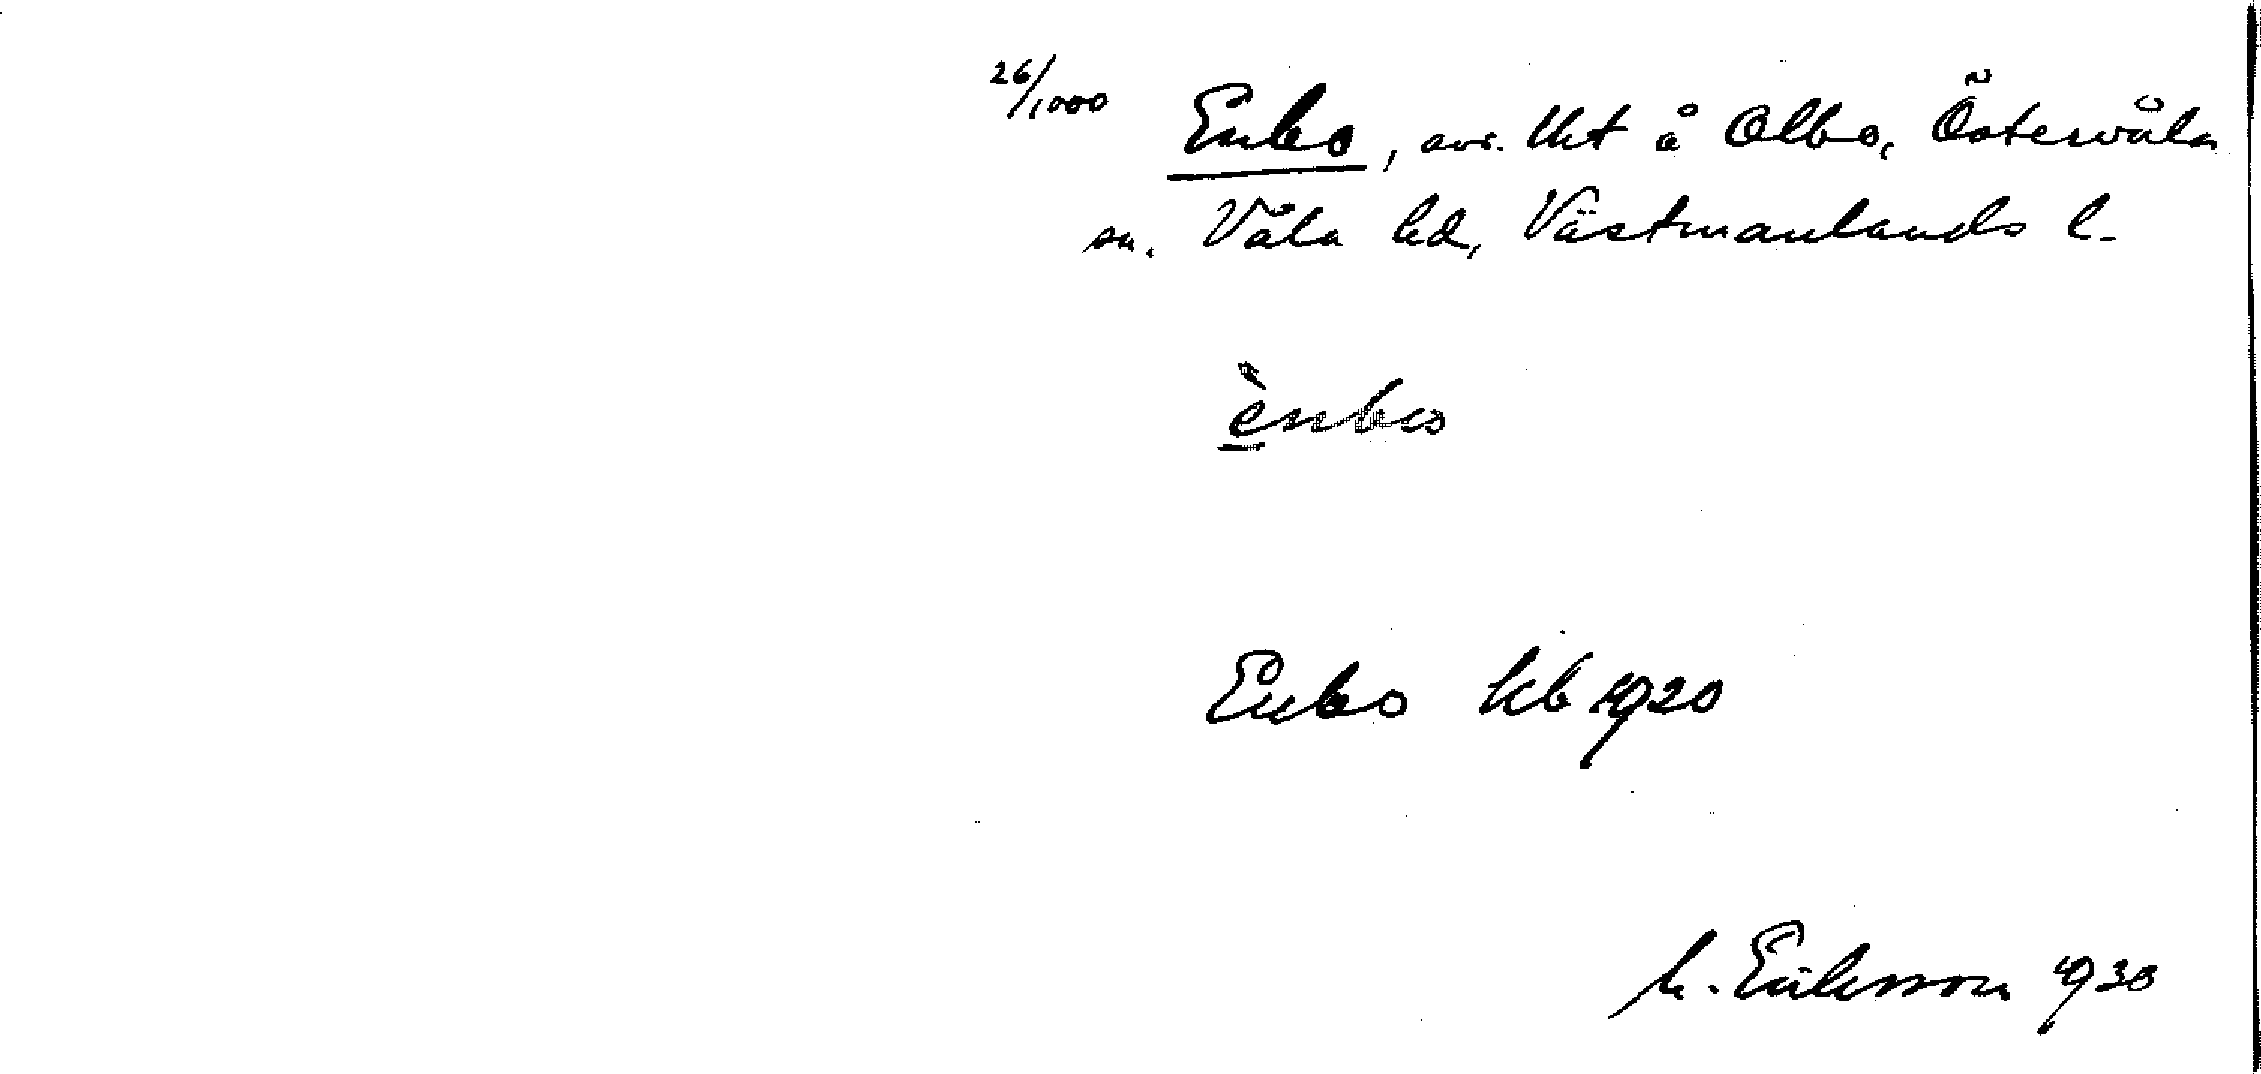 26/1000 Enbo, avs. lht å Olbo, Östervåla
sn. Våla hd, Västmanlands l.
ènbo
Enbo kb 1920
M. Eriksson 1930